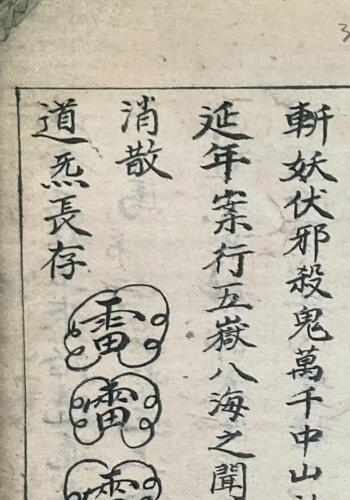 斬妖伏邪殺鬼萬千中山
延年案行五嶽八海之聞
消散
道炁長存
雷
雷